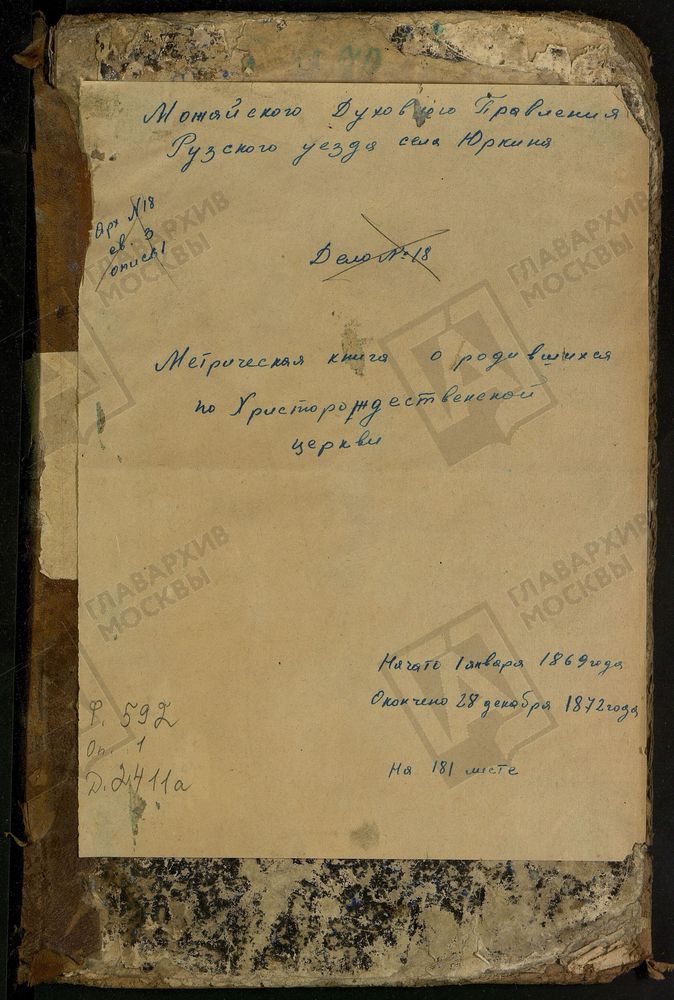 Можайского Духовного Правления
Рузского уезда села Юркина
Арх №18
св. 3
опись 1
Дело № 18
Метрическая книга о родившихся
по Христорождественской
церкви
Начато 1 января 1869 года
Окончено 28 декабря 1872 года
На 181 листе
Ф. 592
Оп. 1
Д. 2411а
ГЛАВАРХИВ
МОСКВЫ
ГЛАВАРХИВ
МОСКВЫ
ГЛАВАРХИВ
МОСКВЫ
ГЛАВАРХИВ
МОСКВЫ